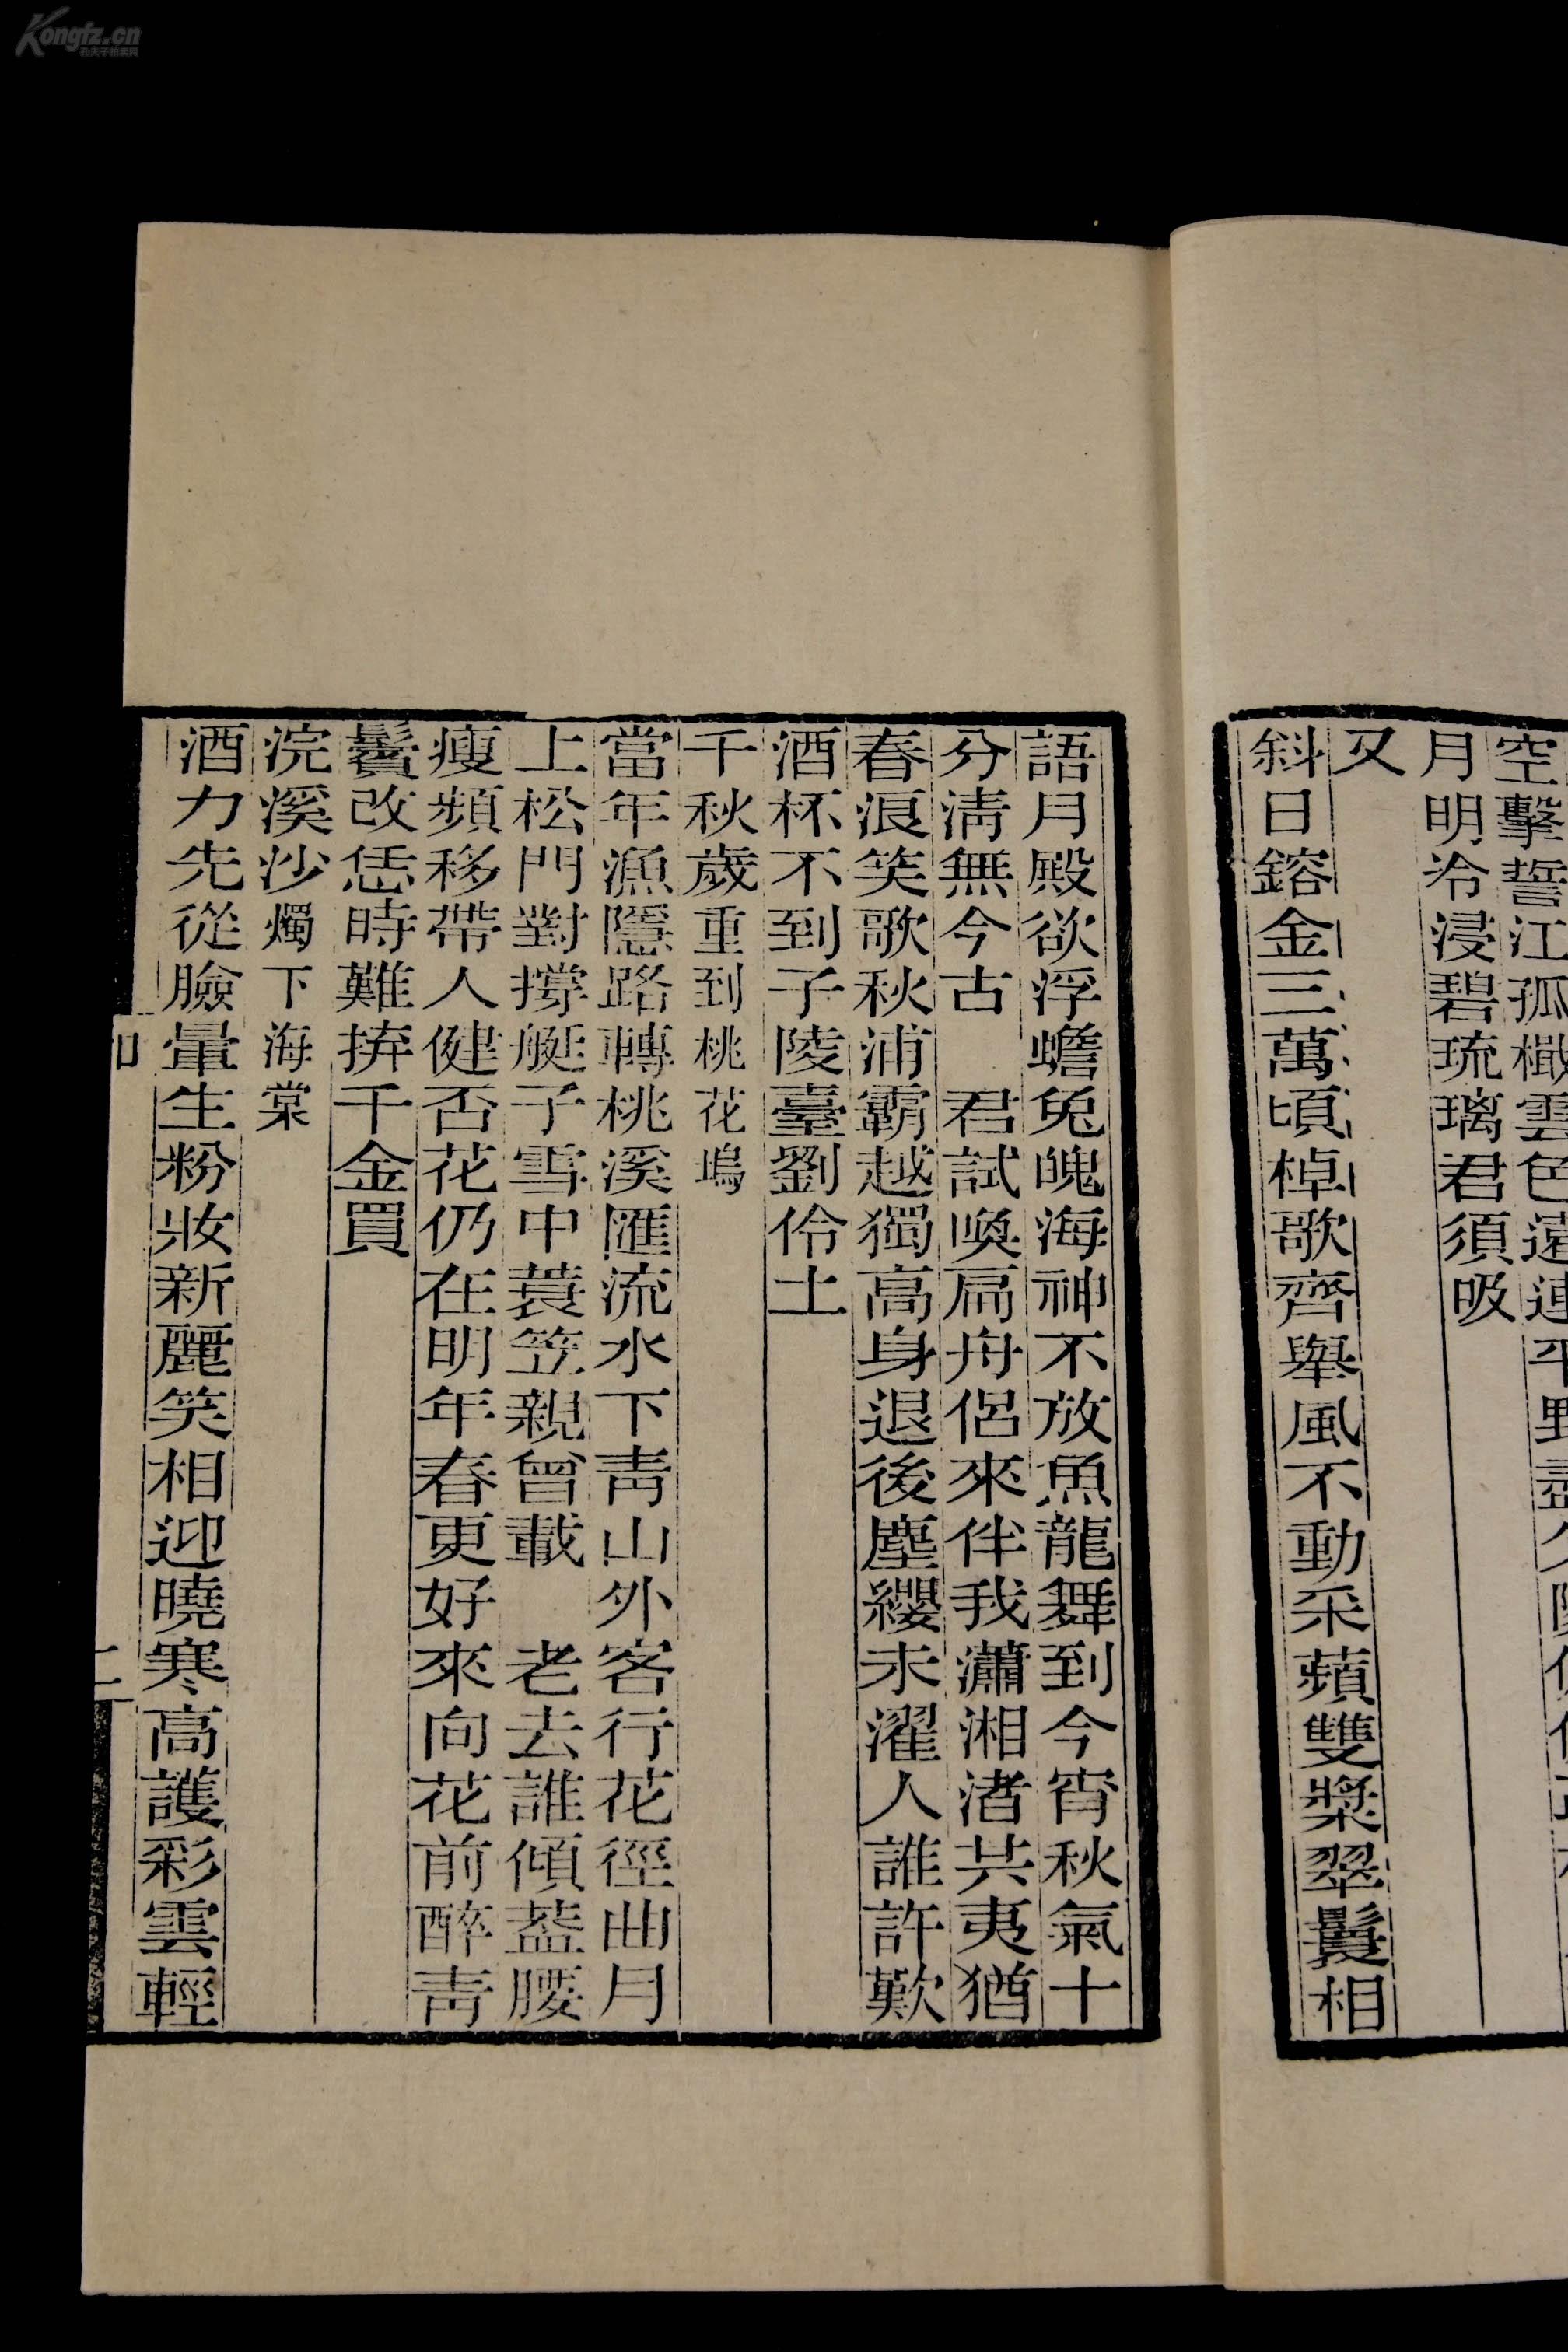 Kongfz.cn
孔夫子旧书网
空擊誓江孤檝雲色遠連平野盡夕陽
月明冷浸碧琉璃君須吸
又
斜日鎔金三萬頃棹歌齊舉風不動采蘋雙槳翠鬟相
語月殿欲浮蟾兔魄海神不放魚龍舞到今宵秋氣十
分淸無今古　君試喚扁舟侶來伴我瀟湘渚共夷猶
春浪笑歌秋浦霸越獨高身退後塵纓未濯人誰許歎
酒杯不到子陵臺劉伶土
千秋歲重到桃花塢
當年漁隱路轉桃溪匯流水下靑山外客行花徑曲月
上松門對撐艇子雪中蓑笠親曾載　老去誰傾蓋腰
瘦頻移帶人健否花仍在明年春更好來向花前醉靑
鬢改恁時難拚千金買
浣溪沙燭下海棠
酒力先從臉暈生粉妝新麗笑相迎曉寒高護彩雲輕
二